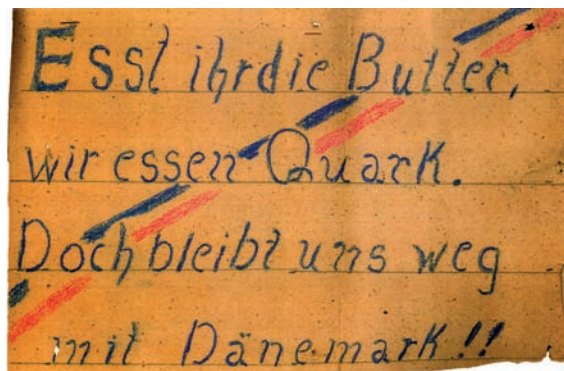 Esst ihr die Butter,
wir essen Quark.
Doch bleibt uns weg
mit Dänemark!!